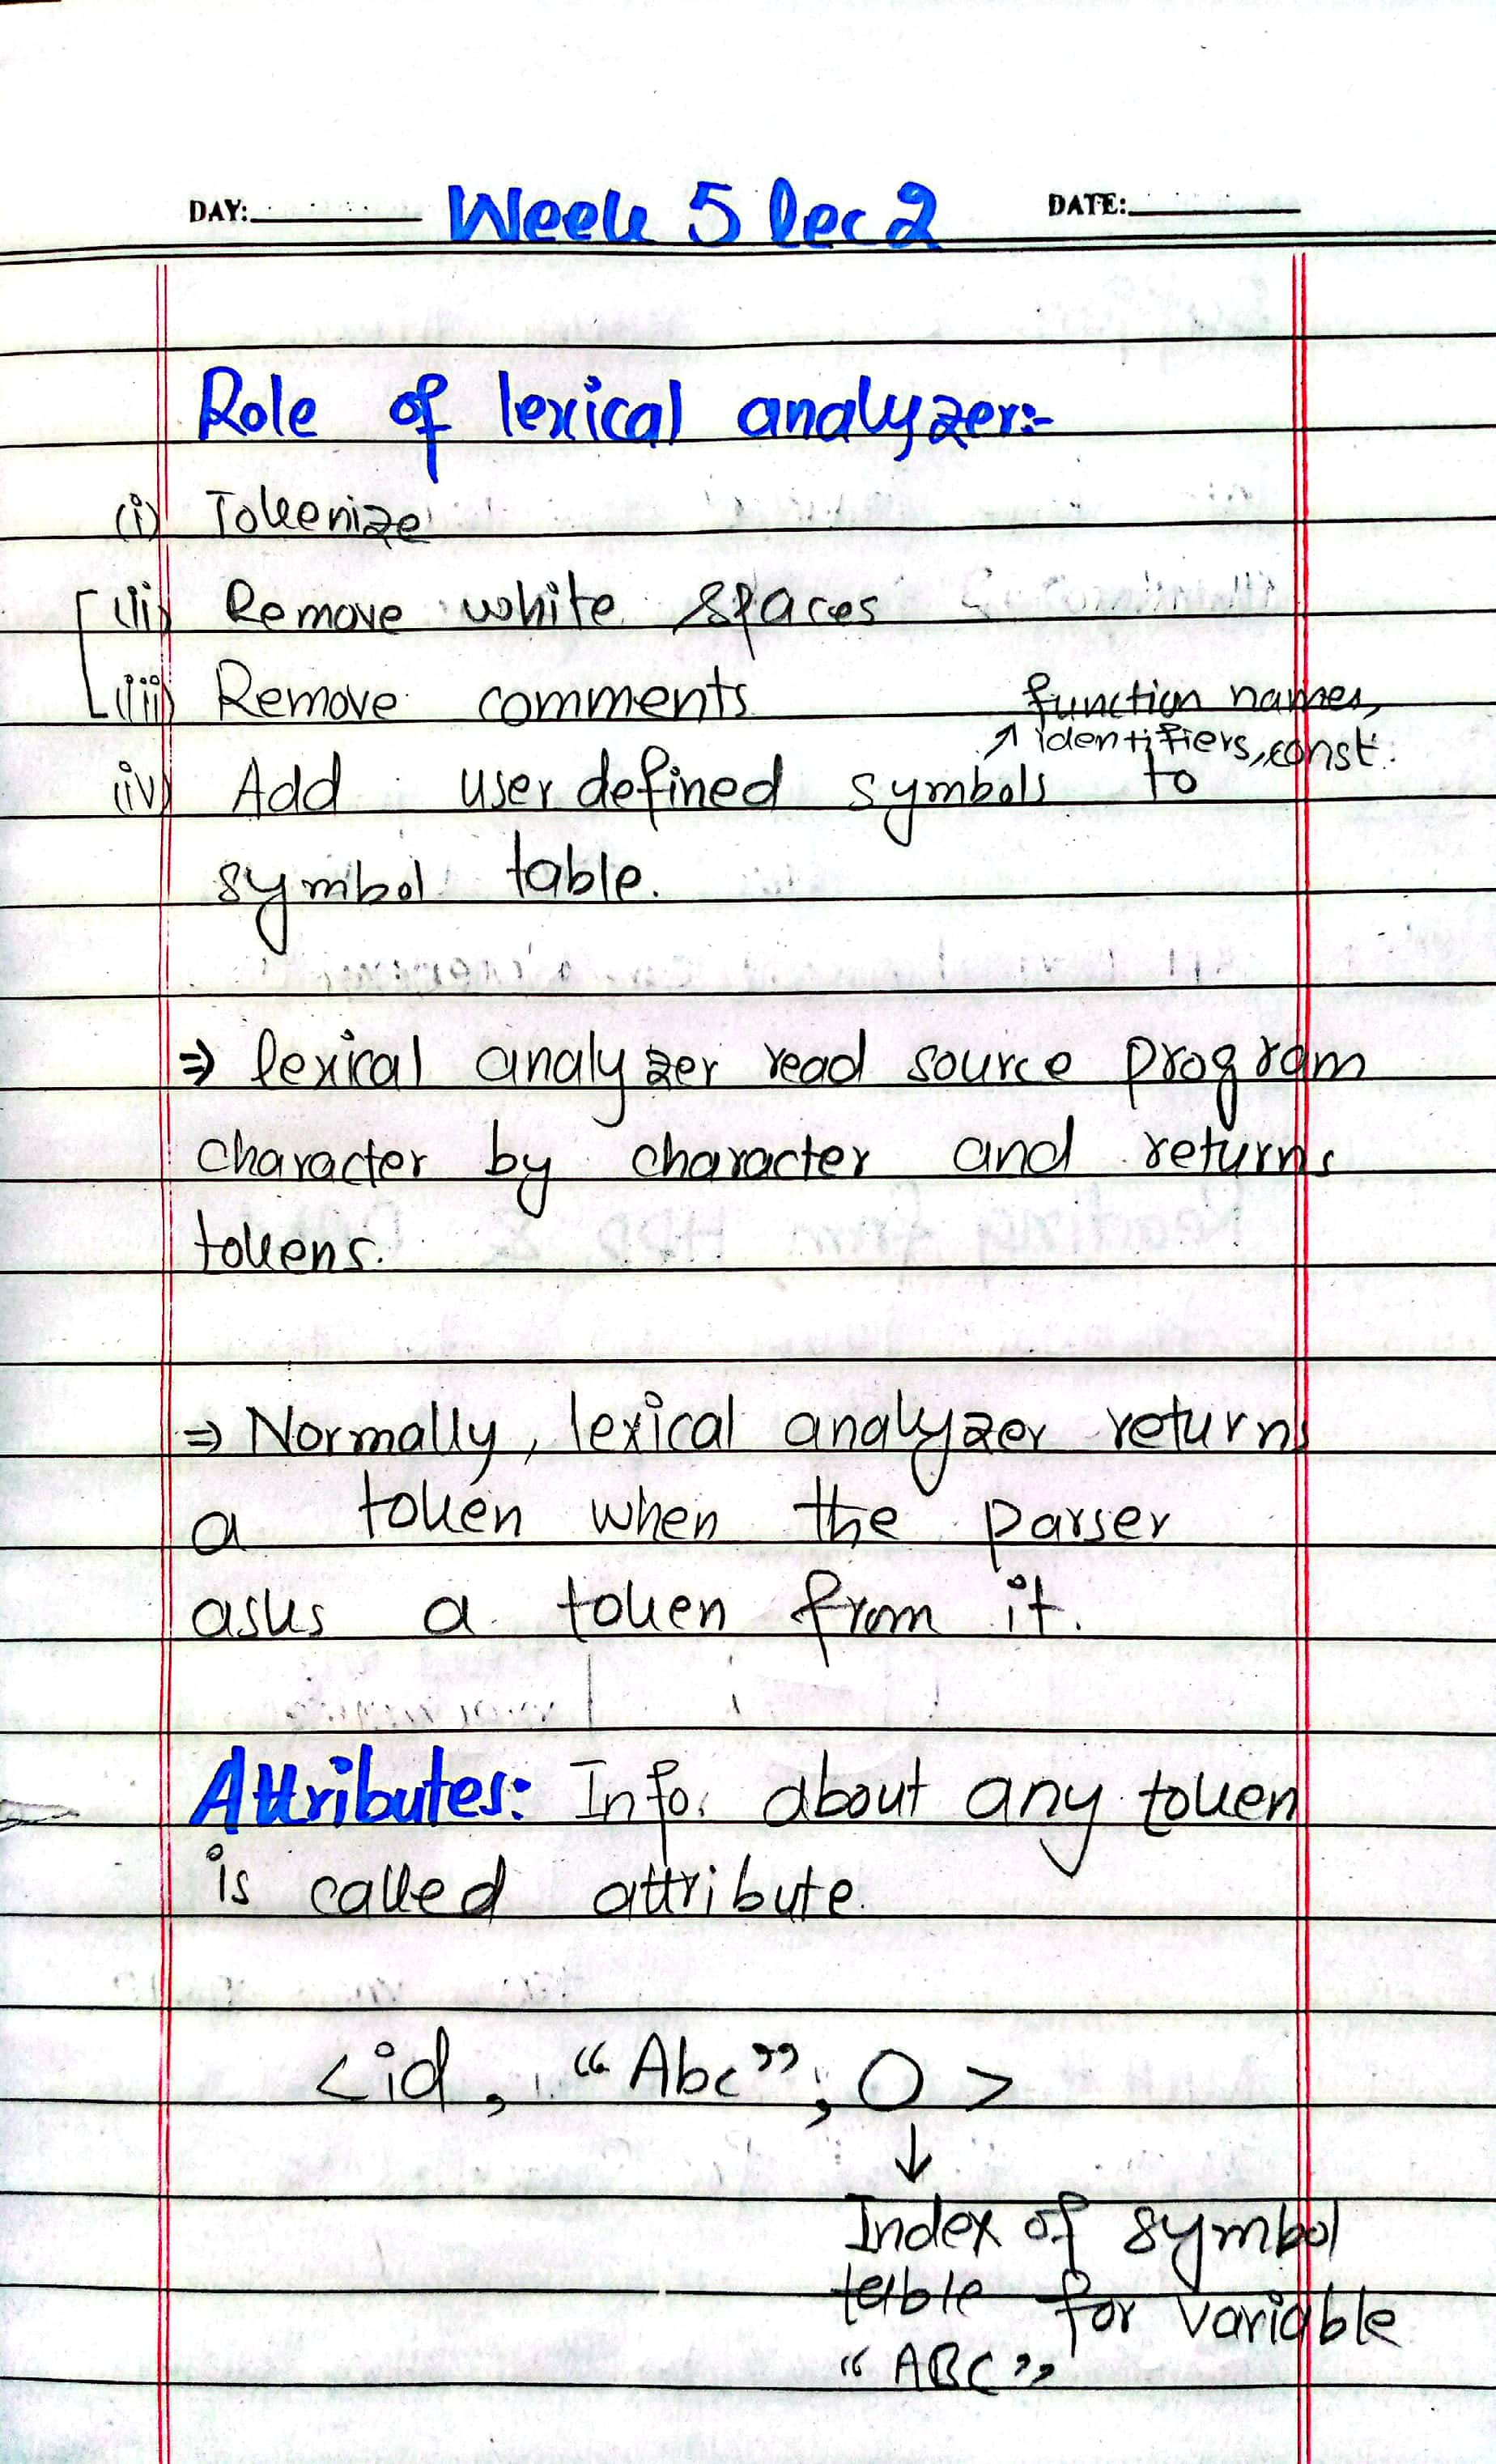 DAY: Week 5 lec 2 DATE:
Role of lexical analyzer:-
(i) Tokenize
(ii) Remove white spaces
(iii) Remove comments
function names,
identifiers, const.
(iv) Add user defined symbols to
symbol table.
⇒ lexical analyzer read source program
character by character and returns
tokens.
⇒ Normally, lexical analyzer returns
a token when the parser
asks a token from it.
Attributes: Info. about any token
is called attribute.
<id, "Abc", 0>
↓
Index of symbol
table for variable
"ABC"